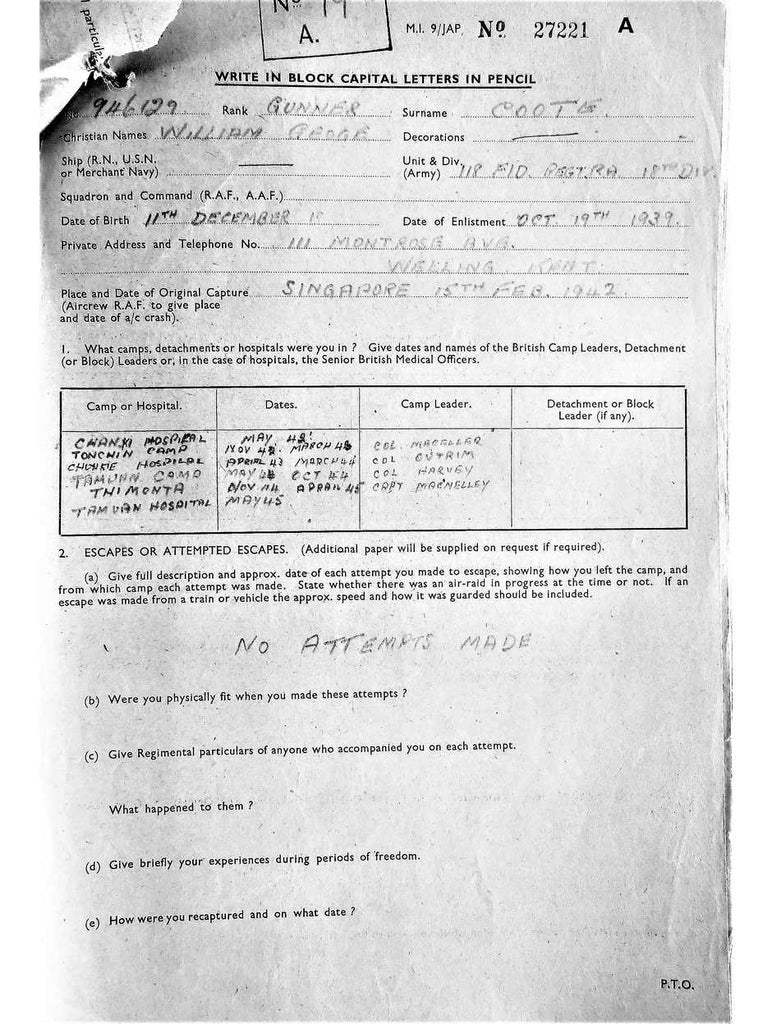 particula
No 19
A.
M.I. 9/JAP. No 27221 A
WRITE IN BLOCK CAPITAL LETTERS IN PENCIL
No. 946129 Rank GUNNER Surname COOTE.
Christian Names WILLIAM GEOGE Decorations
Ship (R.N., U.S.N. or Merchant Navy) Unit & Div. (Army) 118 FLD. REGT. RA. 18TH DIV.
Squadron and Command (R.A.F., A.A.F.)
Date of Birth 11TH DECEMBER Date of Enlistment OCT 19TH 1939.
Private Address and Telephone No. 111 MONTROSE AVE.
WELLING KENT.
Place and Date of Original Capture SINGAPORE 15TH FEB. 1942.
(Aircrew R.A.F. to give place
and date of a/c crash).
1. What camps, detachments or hospitals were you in ? Give dates and names of the British Camp Leaders, Detachment
(or Block) Leaders or, in the case of hospitals, the Senior British Medical Officers.
Camp or Hospital. Dates. Camp Leader. Detachment or Block Leader (if any).
CHANKI HOSPITAL MAY 42'
TONCHIN CAMP NOV 42. MARCH 43 COL
CHUNKIE HOSPITAL APRIAL 43 MARCH 44 COL OUTRIM
TAMUAN CAMP MAY 44 OCT 44 COL HARVEY
THIMONTA NOV 44 APRAIL 45 CAPT MACNELLEY
TAMUAN HOSPITAL MAY 45
2. ESCAPES OR ATTEMPTED ESCAPES. (Additional paper will be supplied on request if required).
(a) Give full description and approx. date of each attempt you made to escape, showing how you left the camp, and
from which camp each attempt was made. State whether there was an air-raid in progress at the time or not. If an
escape was made from a train or vehicle the approx. speed and how it was guarded should be included.
NO ATTEMPTS MADE
(b) Were you physically fit when you made these attempts ?
(c) Give Regimental particulars of anyone who accompanied you on each attempt.
What happened to them ?
(d) Give briefly your experiences during periods of freedom.
(e) How were you recaptured and on what date ?
P.T.O.